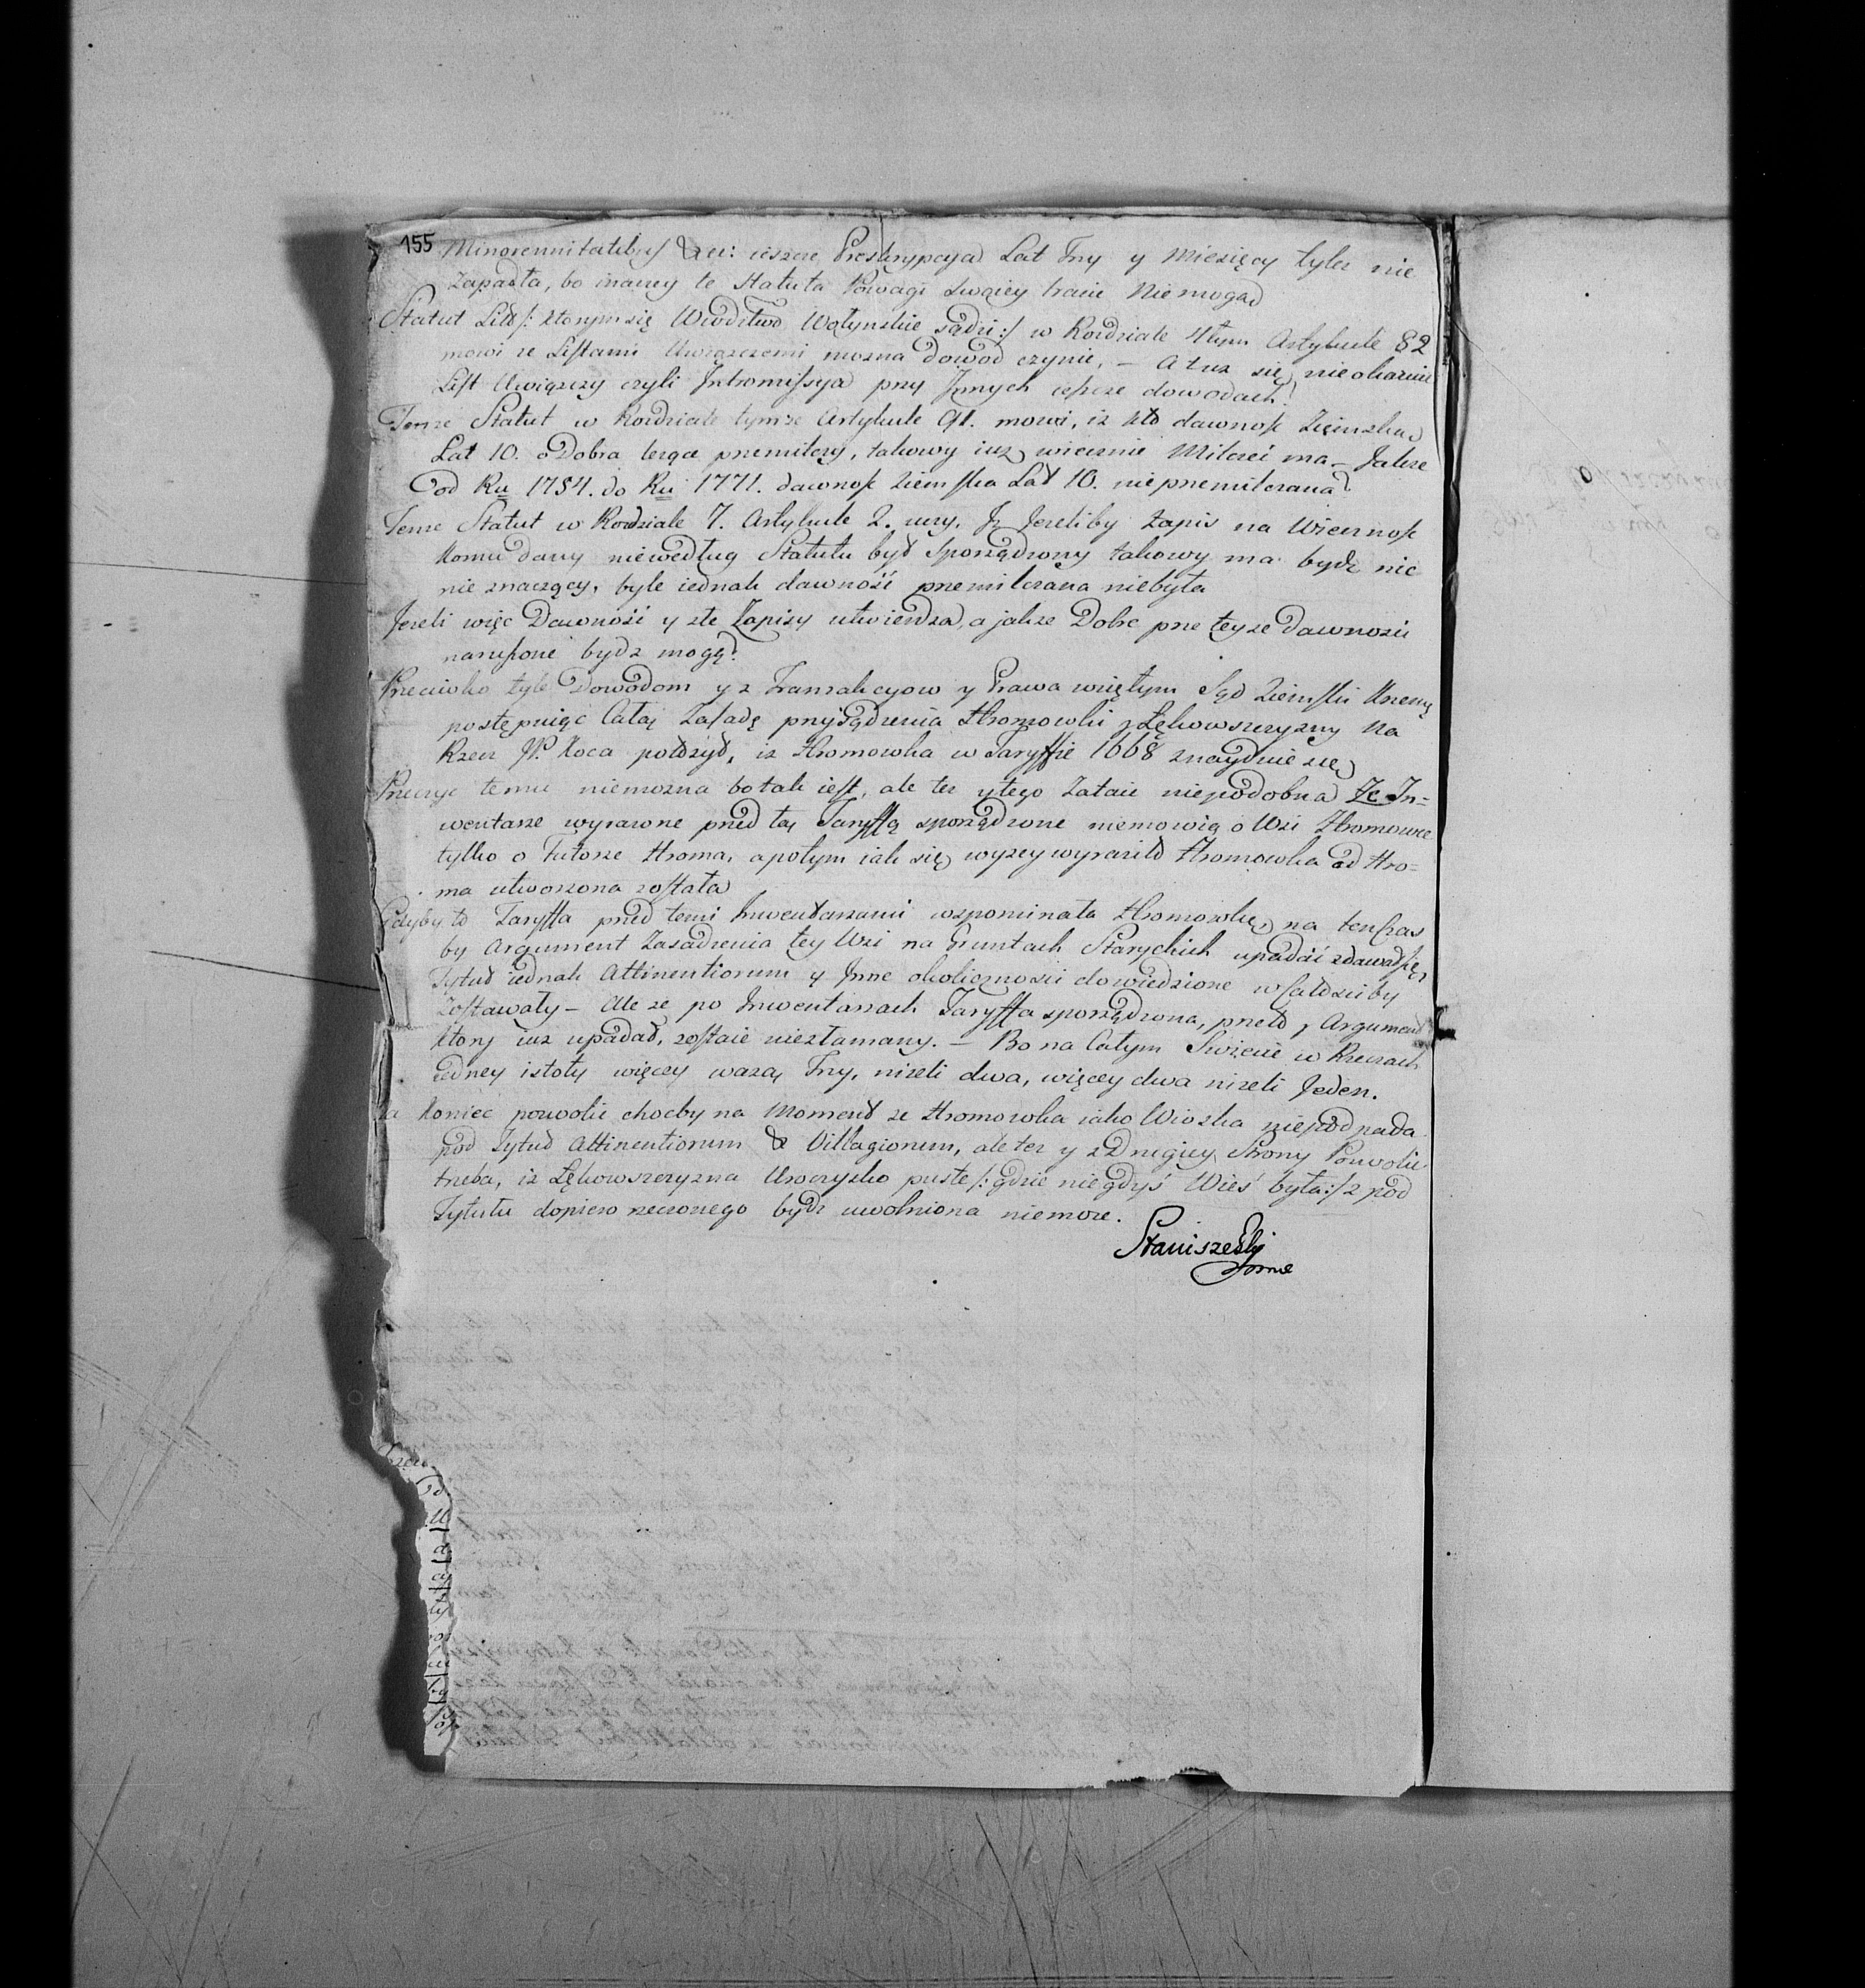 155
Minorennitatibus &cc: ieszcze Preskrypcya Lat Trzy y Miesięcy tylez nie
Zapadła, bo inaczey te Statuta Powagi swoiey tracić Niemogą
Statut Litt/: ktorym się Wwodztwo Wołynskie sądzi:/ w Rozdziale 4tym Artykule 82
mowi ze Listami Uwiązczemi mozna dowod czynic, – A tuz się nieokazuie
List Uwiązczy czyli Intromissya przy Jnnych ieszcze dowodach?
Tenze Statut w Rozdziale tymze Artykule 91. mowi, iz kto dawnosc Ziemską
Lat 10. o Dobra lezące przemilczy, takowy iuz wiecznie Milczeć ma – Jakze
od Ru 1754. do Ru 1771. dawnosc Ziemska Lat 10. nieprzemilczana?
Tenze Statut w Rozdziale 7. Artykule 2. uczy, Jz Jezeliby Zapis na Wiecznosc
komu dany niewedług Statutu był sporządzony takowy ma bydz nic
nie znaczący, byle iednak dawność przemilczana niebyła
Jezeli więc Dawność y złe Zapisy utwierdza, a jakze Dobre prze teyze dawnosci
naruszone bydz mogą?
Przeciwko tyle Dowodom y z Tranzakcyow y Prawa wziętym Sąd Ziemski Krzemę
postępuiąc Całą Zasadę przysądzenia Hromowki z Łękowszczyzny na
Rzecz JP. Koca połozył, iz Hromowka w Taryffie 1668 znayduie się
Przeczyc temu niemozna bo tak iest, ale tez y tego Zataic niepodobna Ze In=
wentarze wyrazone przed tą Taryffą sporządzone niemowią o Wsi Hromowce
tylko o Futorze Hroma, a potym iak się wyzey wyraziło Hromowka od Hro=
ma utworzona została
Gdyby to Taryffa przed temi Inwentarzami wspominała Hromowkę, na tenczas
by Argument Zasadzenia tey Wsi na Gruntach Starychich upadać zdawał się
Tytuł iednak Attinentiorum y Jnne okolicznosci dowiedzione w całosci by
Zostawały – Ale ze po Inwentarzach Taryffa sporządzona, przeto y Argument
ktory iuz upadał, zostaie niezłamany. – Bo na Całym Swiecie w Rzeczach
iedney istoty więcey wazą Trzy, nizeli dwa, więcey dwa nizeli Jeden.
Na Koniec pozwolic chocby na Moment ze Hromowka iako Wioska niepodpada
pod Tytuł Attinentiorum & Villagiorum, ale tez y z Drugiey Strony Pozwolic
trzeba, iz Łękowszczyzna Uroczysko puste/: gdzie niegdyś Wieś była:/ z pod
Tytułu dopiero rzeczonego bydz uwolniona niemoze.
Staniszewski